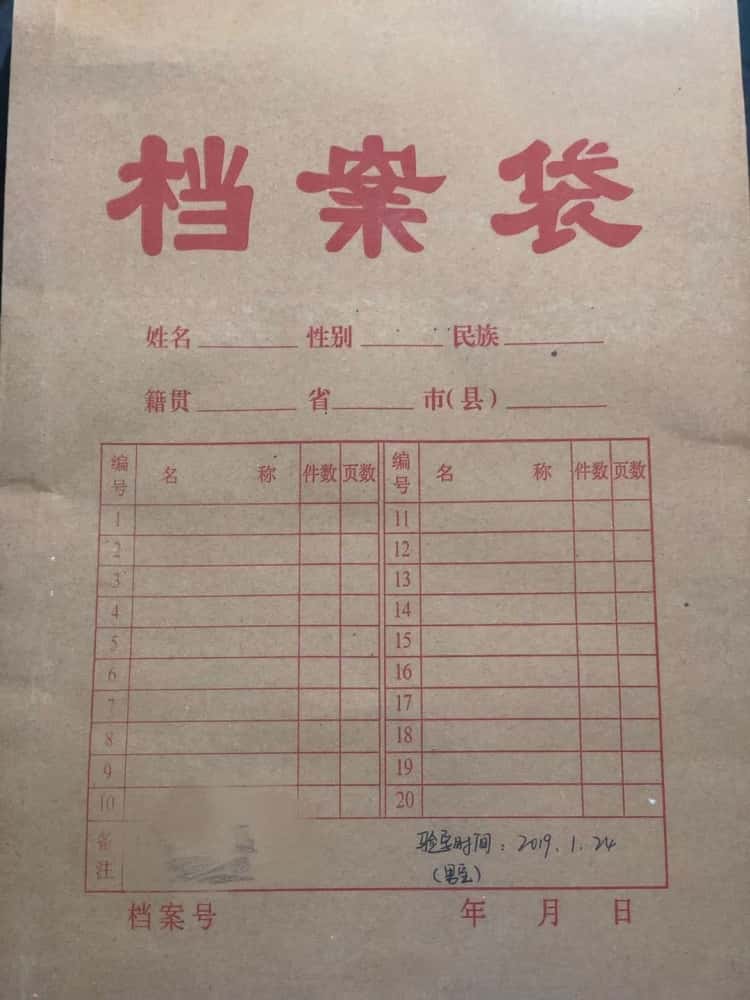 档案袋
姓名 性别 民族
籍贯 省 市(县)
编号 名称 件数 页数 编号 名称 件数 页数
1 11
2 12
3 13
4 14
5 15
6 16
7 17
8 18
9 19
10 20
备注 验宝时间：2019.1.24
档案号 年 月 日